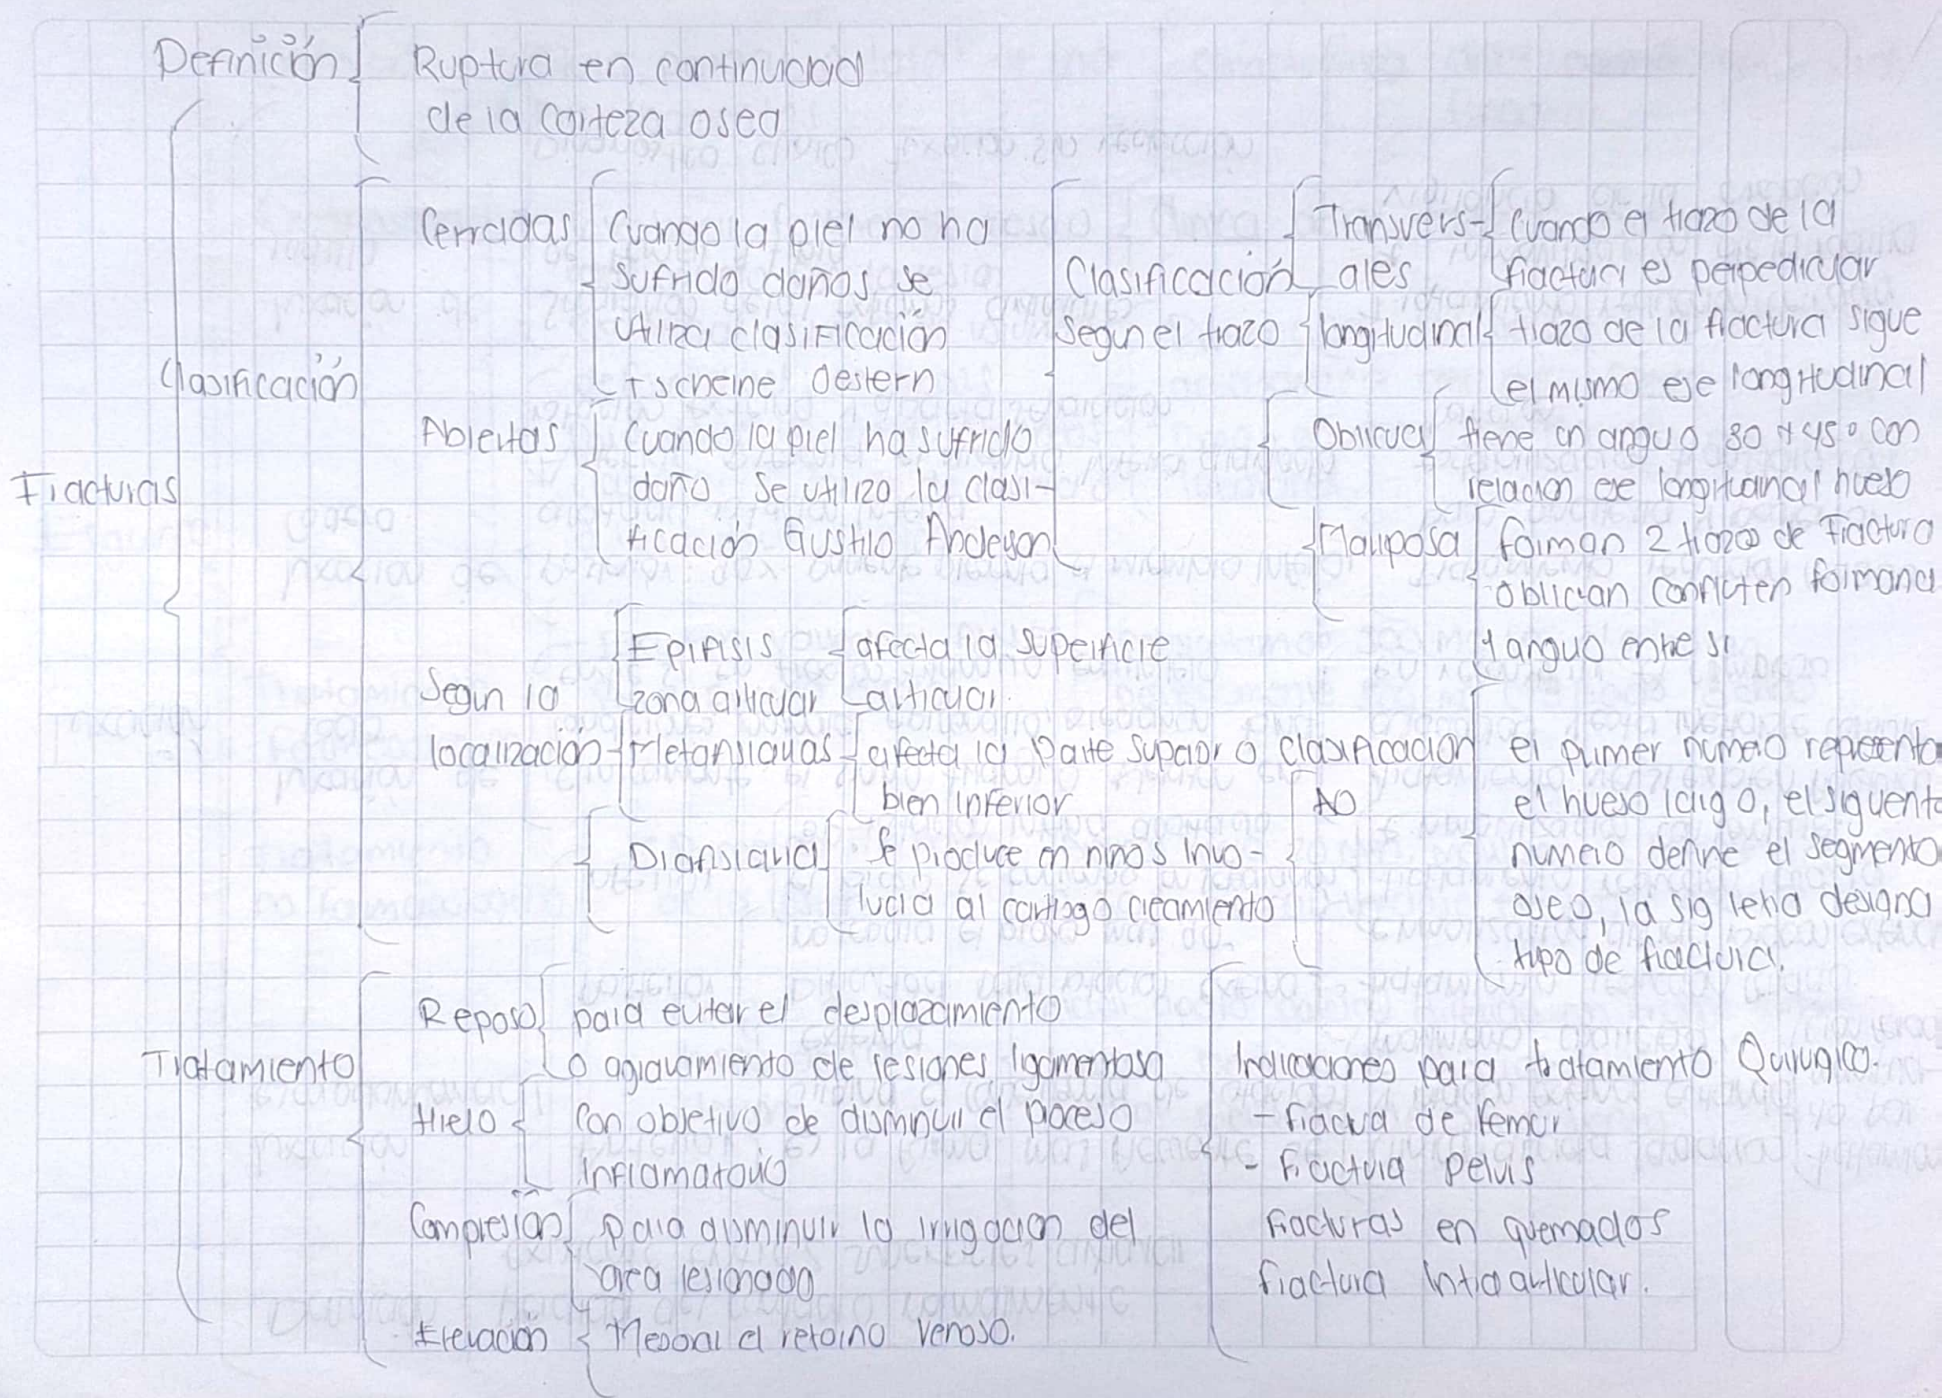 Definición
Ruptura en continuidad
de la corteza osea
Fracturas
Clasificación
Cerradas
Cuando la piel no ha
sufrido daños se
utiliza clasificación
tscheine Oestern
Abiertas
Cuando la piel ha sufrido
daño se utiliza la clasi-
ficación Gustilo Anderson
Clasificación
segun el trazo
Transvers-
ales
Cuando el trazo de la
fractura es perpedicular
longitudinal
trazo de la fractura sigue
el mismo eje longitudinal
Oblicua
tiene un anguo 30 y 45° con
relacion eje longitudinal hueso
Mariposa
forman 2 trazos de Fractura
oblicuan confluten formana
y anguo entre si
Segun la
localización
Epifisis
zona articular
afecta la superficie
articular.
Metafisiarias
afecta la parte superior o
bien inferior
Diafisiaria
Se produce en niños invo-
lucra al cartiago creamiento
clasificacion
AO
el primer numero representa
el hueso largo, el siguente
numero define el segmento
oseo, la sig letra designa
tipo de fractura.
Tratamiento
Reposo
para evitar el desplazamiento
o agravamiento de lesiones ligamentosa
Hielo
Con objetivo de disminuir el proceso
inflamatorio
Compresión
para disminuir la irrigacion del
area lesionada
Elevación
Mejorar el retorno venoso.
Indicaciones para tratamiento Quirugico.
- fracura de Femur
- fractura pelvis
Fracturas en quemados
fractura intraarticular.